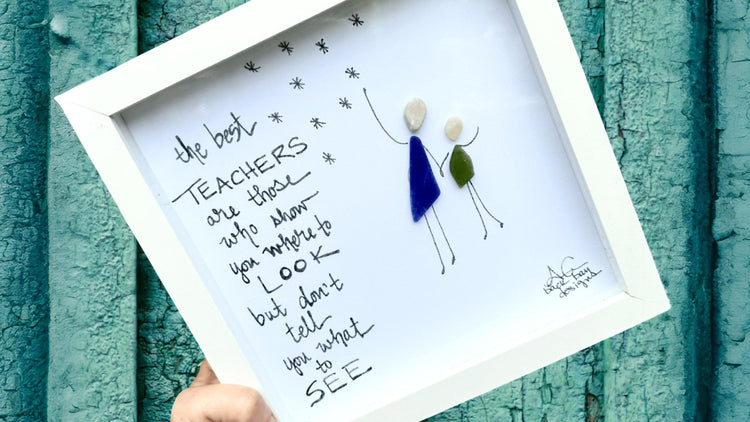 the best
TEACHERS
are those
who show
you where to
LOOK
but don't
tell
you what
to
SEE
designs